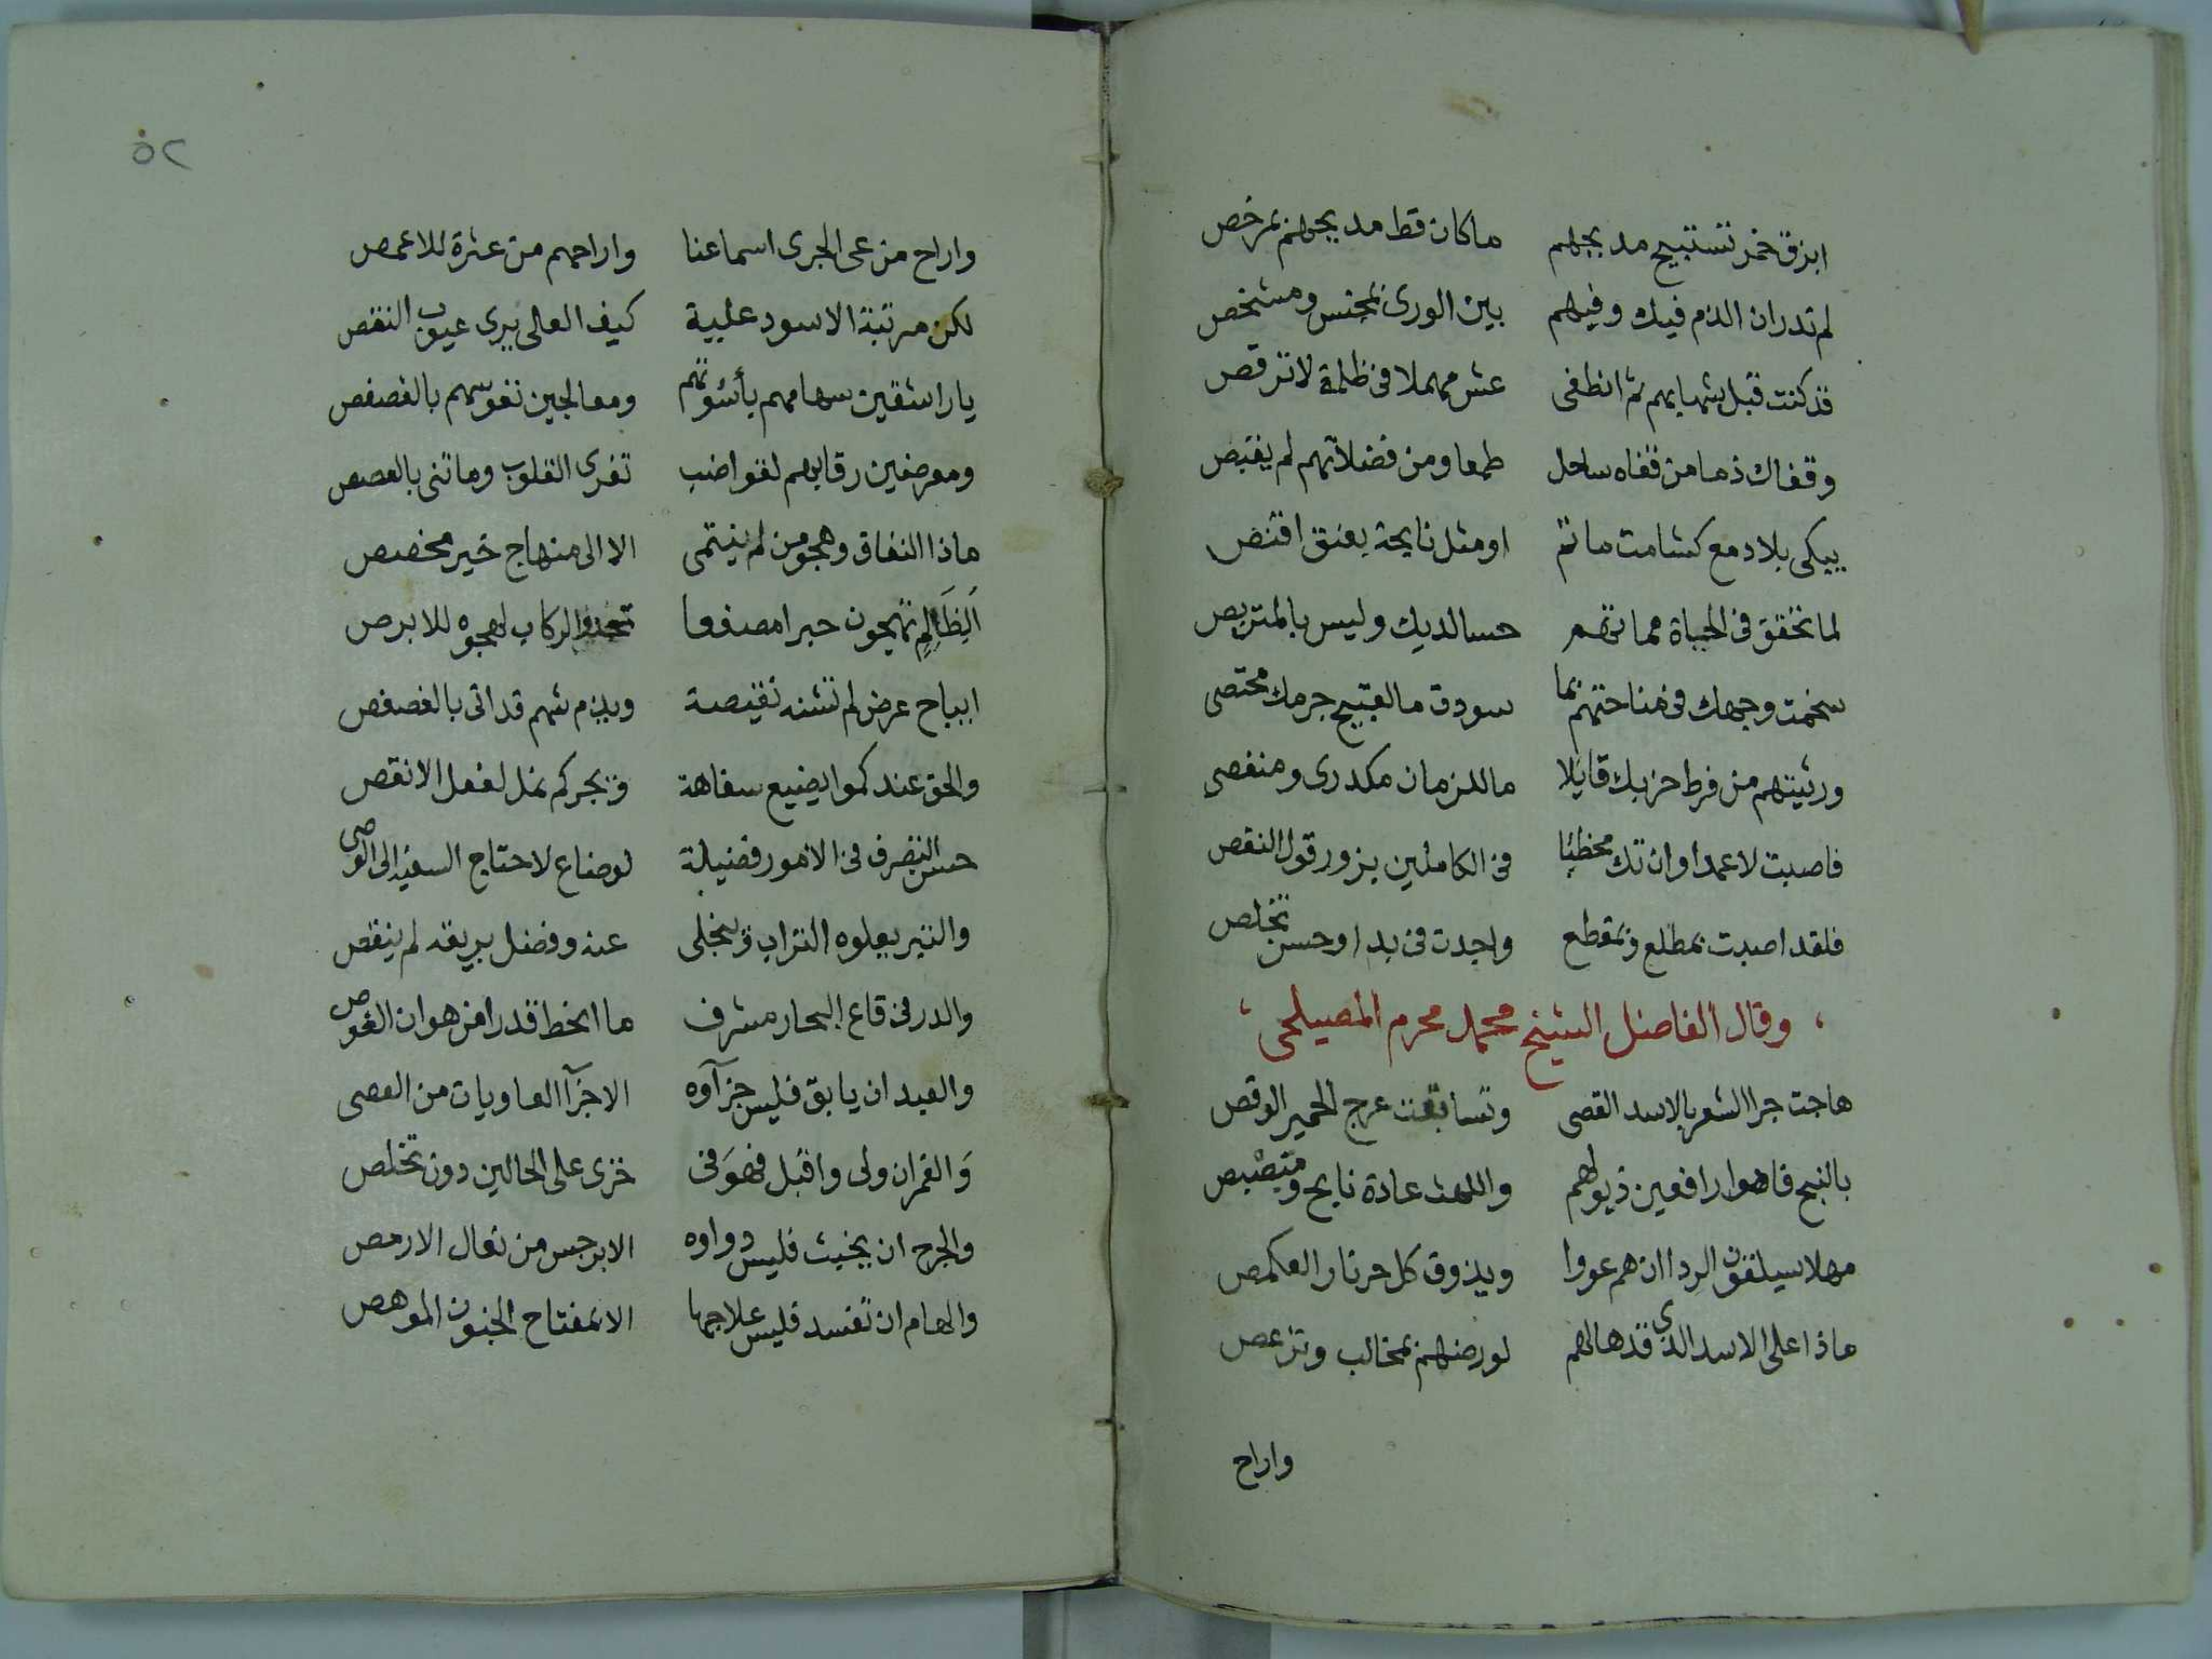 ابزق خمر تستبيح مديحهم ماكان قط مديحهم بمرخص
لم تدر ان الذم فيك وفيهم بين الورى بمجنس ومشخص
قد كنت قبل شهابهم ثم انطفى عش مهملا فى ظلمة لا ترقص
وقفاك ذما من قفاه ساحل طمعا ومن فضلاتهم لم يقبص
يبكى بلا دمع كشامت ماتم او مثل نايحة بعنق اقنص
لما تحقق فى الحياة مماتهم حسا لديك وليس بالمتربص
سخمت وجهك فى مناحتهم بما سودت ما القبيح جرمك محتصى
ورثيتهم من فرط حزبك قايلا ما للزمان مكدرى ومنغصى
فاصبت لا عمدا وان تك مخطئا فى الكاملين بزور قول النقص
فلقد اصبت بمطلع وبمقطع واجدت فى بدا وحسن تخلص
وقال الفاضل الشيخ محمد محرم المصيلحى
هاجت جرا الشعر بالاسد القصى وتسابقت عرج الحمير الوقص
بالنبح فاهوا رافعين ذيولهم واللهث عادة نابح ومبصبص
مهلا سيلقون الردا ان هم عووا ويذوق كل حر نار العكمص
ماذا على الاسد الذى قد هالهم لورضهم بمخالب وتزعص
واراح
٥٢
واراح من عى الجرى اسماعنا واراحهم من عثرة للاعمص
لكن مرتبة الاسود علية كيف العالى يرى عيوب النقص
يا راشقين سهامهم بأشوتهم ومعالجين نفوسهم بالغصغص
ومعرضين رقابهم لقواضب تفرى القلوب وما تنى بالعصعص
ماذا النفاق وهجو من لم ينتمى الا الى منهاج خير مخصص
الظالم تهيجون حبرا مصدفا تحدوا الركاب لهجوه للابرص
ايباح عرض لم تشنه نقيصة ويذم شهم قد اتى بالغصغص
والحق عندكموا يضيع سفاهة وبجركم نمل لفعل الانقص
حسن التصرف فى الامور فضيلة لوضاع لاحتاج السفيه الى الوصى
والتبر يعلوه التراب وينجلى عنه وفضل بريقه لم ينقص
والدر فى قاع البحار مشرف ما انحط قدرا من هوان الغوص
والعبد ان يابق فليس جزآوه الا جزآ العاويات من العصى
والقمران ولى واقبل فهو فى خزى على الحالين دون تخلص
والجرح ان يخبث فليس دواوه الا برجس من نعال الارمص
والهام ان تفسد فليس علاجها الا بمفتاح الجنون الموهص